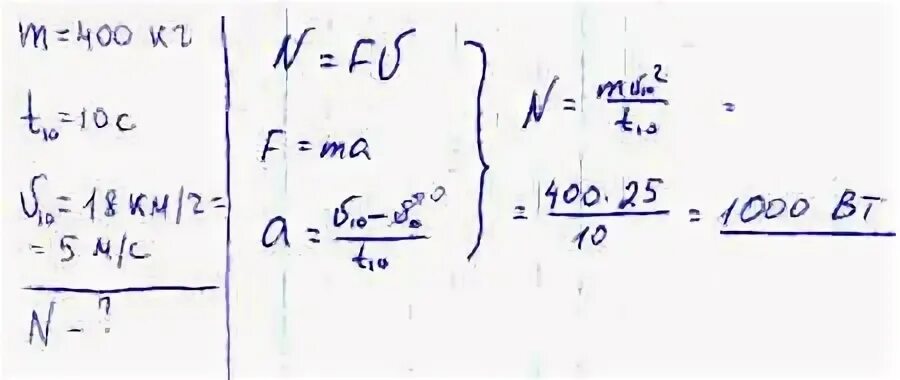 m = 400 кг
t₁₀ = 10 с
υ₁₀ = 18 км/г =
= 5 м/с
N – ?
N = Fυ
F = ma
a = (υ₁₀ – υ₀→0)/t₁₀
N = mυ₁₀²/t₁₀ =
= 400 · 25/10 = 1000 Вт